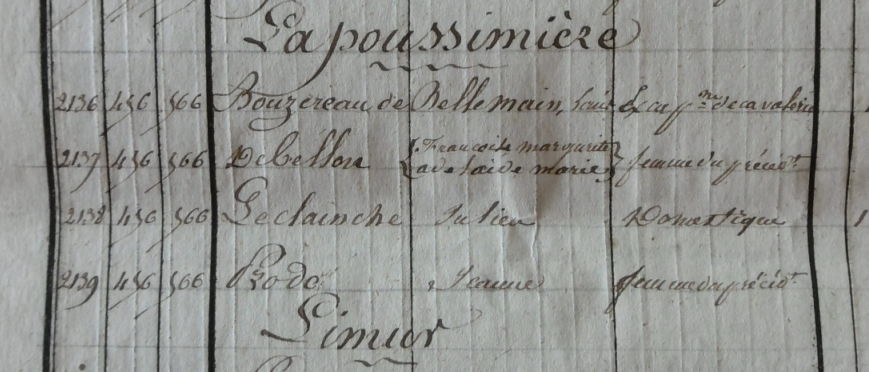 Lapoussimière
2136 456 566 Bouzereau de Bellemain, Louis Ex cap.ne de cavalerie 1
2137 456 566 Debellon { Francoise marguerite
adelaide marie } femme du précédt.
2138 456 566 Leclainche Julien Domestique 1
2139 456 566 Prodo Jeanne femme du précédt.
Limur